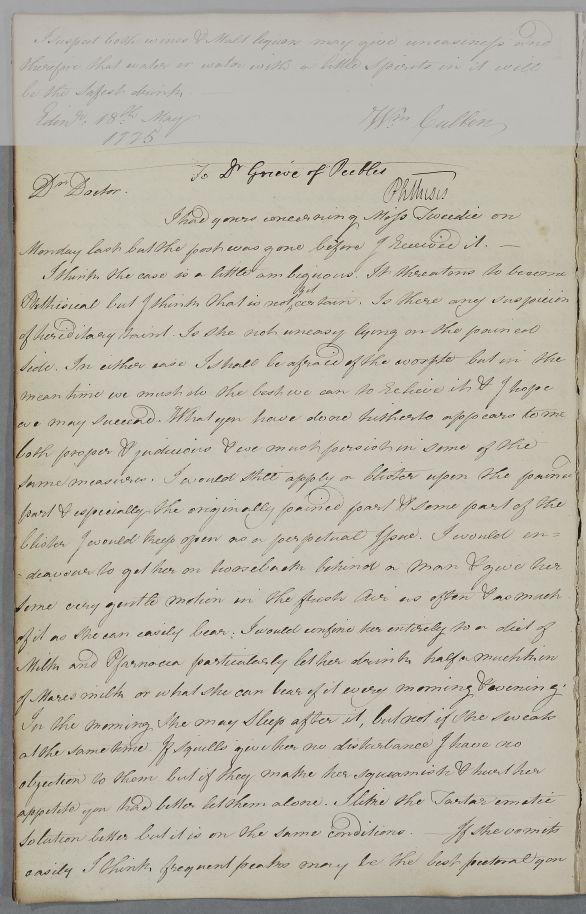 I suspect both wines & Malt liquors may give uneasiness and
therefore that water or water with a little Spirits in it will
be the Safest drink. —
Edinr. 18th. May
1775
Wm Cullen
To Dr Grieve of Peebles
Dr. Doctor.
Phthisis
I had yours concerning Miss Tweedie on
Monday last but the post was gone before I received it. —
I think the case is a little ambiguous. It threatens to become
Phthisical but I think that is not yet certain. Is there any suspicion
of hereditary taint. Is she not uneasy lying on the pained
side. In either case I shall be afraid of the worst but in the
mean time we must do the best we can to relieve it & I hope
we may succeed. What you have done hitherto appears to me
both proper & judicious & we must persist in some of the
same measures. I would still apply a blister upon the pained
part & especially the originally pained part & some part of the
blister I would keep open as a perpetual Issue. I would en=
=deavour to get her on horseback behind a man & give her
some very gentle motion in the fresh Air as often & as much
of it as she can easily bear. I would confine her entirely to a diet of
Milk and Farnacea particularly let her drink half a mutchkin
of Mares milk or what she can bear of it every morning & evening.
In the morning she may Sleep after it, but not if she sweats
at the same time. If Squills give her no disturbance I have no
objection to them but if they make her squeamish & hurt her
appetite you had better let them alone. I like the Tartar emetic
Solution better but it is on the same conditions. — If she vomits
easily I think frequent pukes may be the best pectoral you